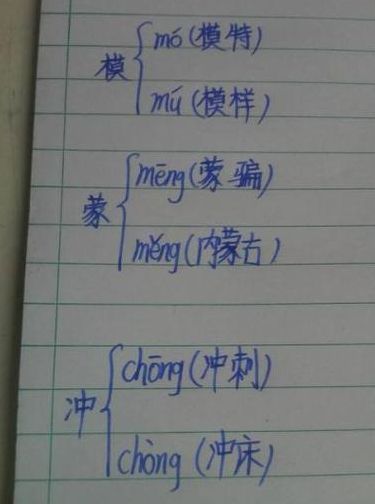 模
mó(模特)
mú(模样)
蒙
mēng(蒙骗)
měng(内蒙古)
冲
chōng(冲刺)
chòng(冲床)